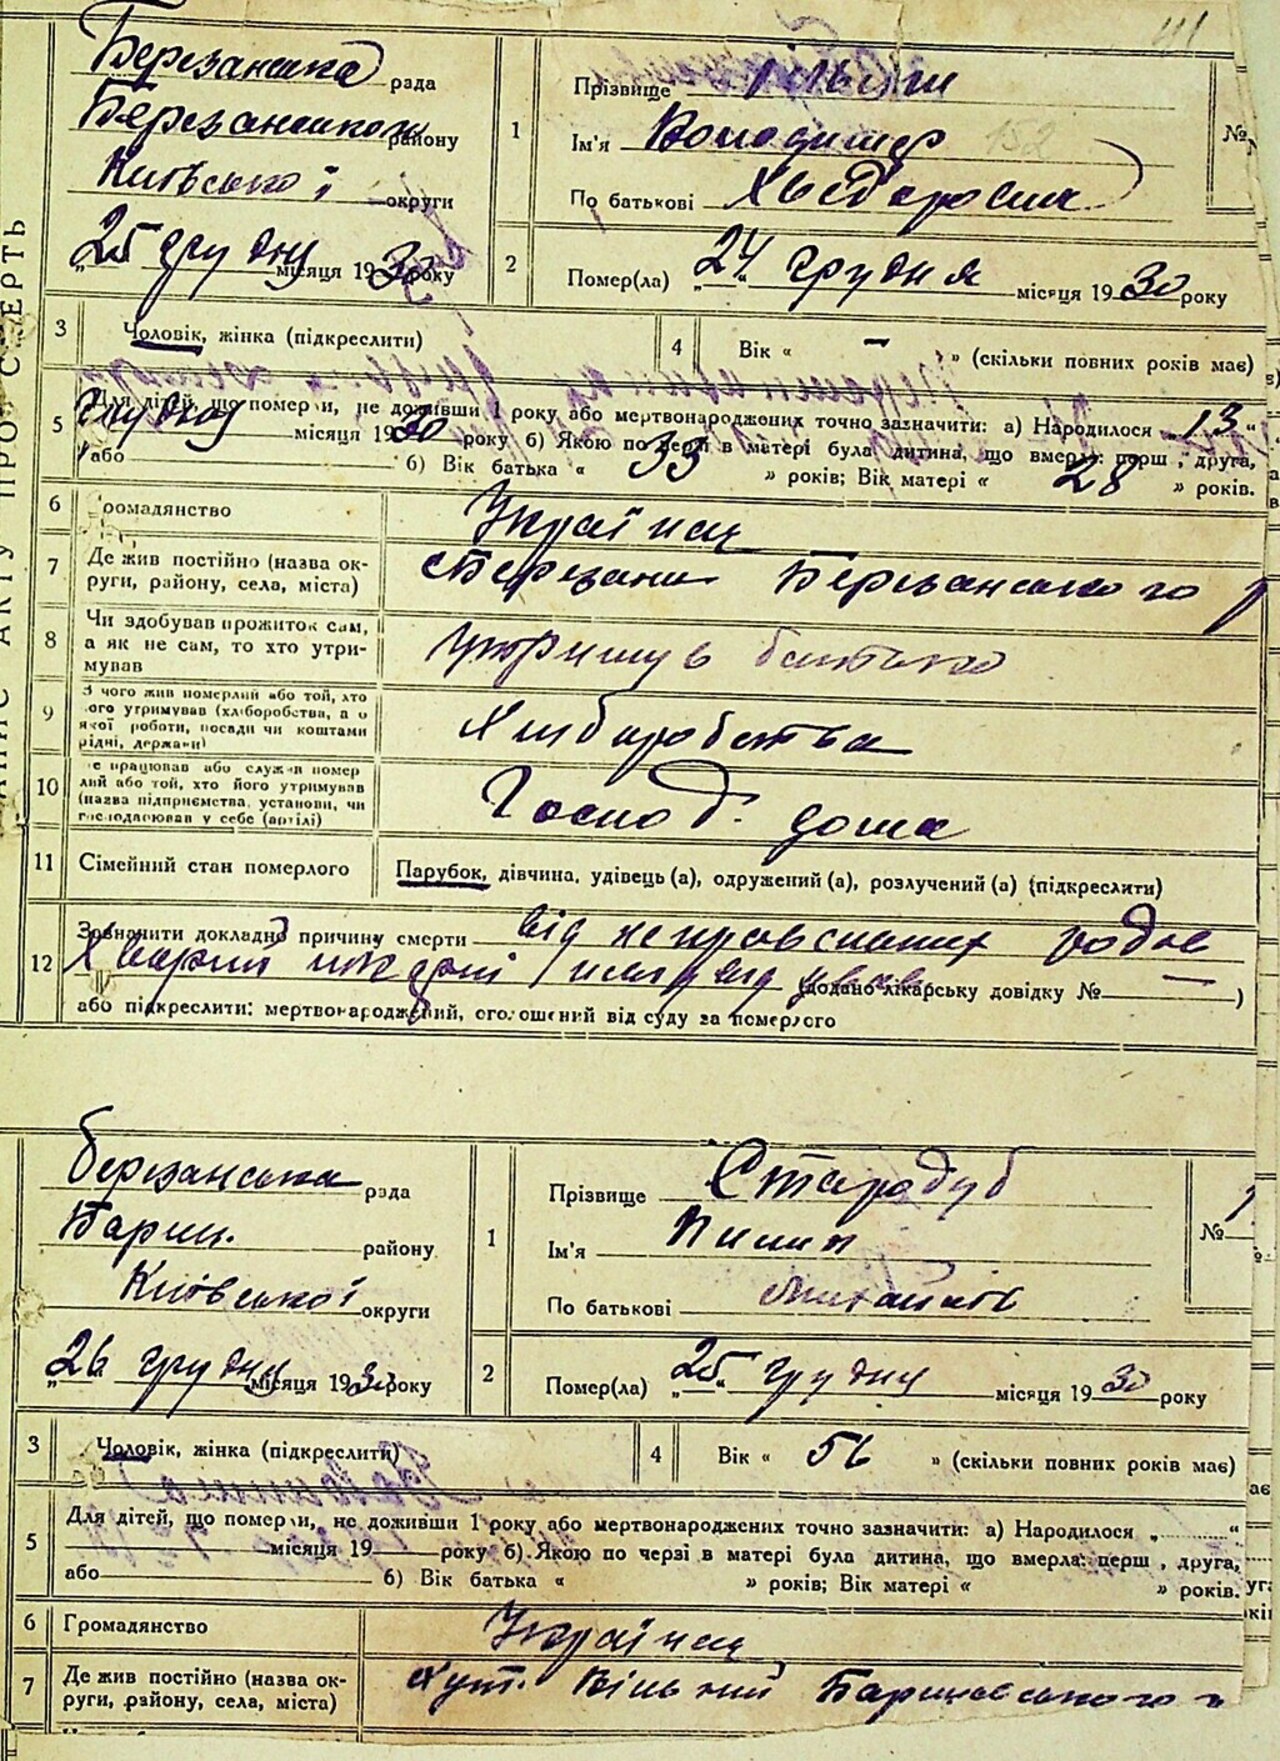 Березанська рада
Березанського району
Київської округи
„25 грудня місяця 1930 року
ЗАПИС АКТУ ПРО СМЕРТЬ
1
Прізвище
Ім'я Володимир 152
По батькові Хведорович
№
2 Помер(ла) „24“ грудня місяця 1930 року
3 Чоловік, жінка (підкреслити)
4 Вік « – » (скільки повних років має)
5 Для дітей, що померли, не доживши 1 року або мертвонароджених точно зазначити: а) Народилося „13“
грудня місяця 1930 року б) Якою по черзі в матері була дитина, що вмерла: перш , друга,
або б) Вік батька « 33 » років; Вік матері « 28 » років.
6 Громадянство Українець
7 Де жив постійно (назва ок-
руги, району, села, міста) Березань Березанського р
8 Чи здобував прожиток сам,
а як не сам, то хто утри-
мував утримував батько
9 З чого жив померлий або той, хто
його утримував (хліборобства, а о
якої роботи, посади чи коштами
рідні, держави) Хліборобства
10 Де працював або служив помер
лий або той, хто його утримував
(назва підприємства, установи, чи
господарював у себе (артілі) Господ. дома
11 Сімейний стан померлого Парубок, дівчина, удівець (а), одружений (а), розлучений (а) (підкреслити)
12 Зазначити докладно причину смерти від неправельних родов
(додано лікарську довідку № — )
або підкреслити: мертвонароджений, оголошений від суду за померлого
Березанська рада
Бариш. району
Київської округи
„26 грудня місяця 1930 року
1
Прізвище Стародуб
Ім'я Пилип
По батькові
№
2 Помер(ла) „25“ грудня місяця 1930 року
3 Чоловік, жінка (підкреслити)
4 Вік « 56 » (скільки повних років має)
5 Для дітей, що померли, не доживши 1 року або мертвонароджених точно зазначити: а) Народилося „ “
місяця 19 року б) Якою по черзі в матері була дитина, що вмерла: перш , друга,
або б) Вік батька « » років; Вік матері « » років.
6 Громадянство Українець
7 Де жив постійно (назва ок-
руги, району, села, міста) Хут. Вільний Баришевського р